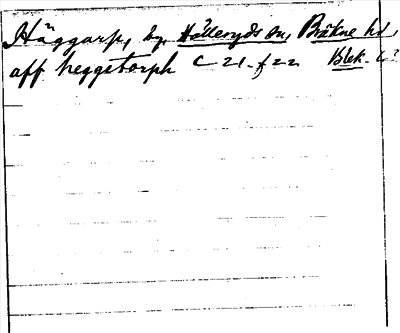 Häggarp, by, Hälleryds sn, Bräkne hd, Blek. l.
aff heggetorph C 21 f 22